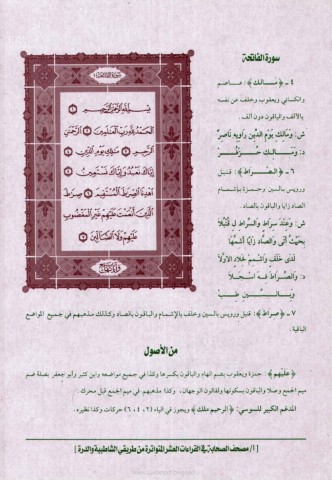 سورة الفاتحة
٤ - ﴿مَـالِـك﴾: عـاصـم
والكسائي ويعقوب وخلف عن نفسه
بالألف والباقون دون ألف.
ش: وَمَالِكِ يَوْمِ الدِّينِ رَاوِيهِ نَاصِرٌ
د: وَمَـالِـكِ حُـزْ فُـزْ
٦ - ﴿الـصِّـرَاطَ﴾: قنبل
ورويس بالسين وحمزة بإشمام
الصاد زايا والباقون بالصاد.
ش: وَعِنْدَ سِرَاطٍ وَالسِّرَاطَ لِ قُنْبُلَا
بِحَيْثُ أَتَى وَالصَّادَ زَايًا أَشِمَّهَا
لَدَى خَلَفٍ وَاشْمِمْ لِخَلَّادَ الاَوَّلَا
د: وَالصِّرَاطَ فِهْ اسْجَلَا
وَبِـالـسِّـيـنِ طِـبْ
٧ - ﴿صِرَاطَ﴾: قنبل ورويس بالسين وخلف بالإشمام والباقون بالصاد وكذلك مذهبهم في جميع المواضع
الباقية.
سورة الفاتحة
بِسْمِ اللَّهِ الرَّحْمَٰنِ الرَّحِيمِ ١
الْحَمْدُ لِلَّهِ رَبِّ الْعَالَمِينَ ٢ الرَّحْمَٰنِ
الرَّحِيمِ ٣ مَالِكِ يَوْمِ الدِّينِ ٤
إِيَّاكَ نَعْبُدُ وَإِيَّاكَ نَسْتَعِينُ ٥
اهْدِنَا الصِّرَاطَ الْمُسْتَقِيمَ ٦ صِرَاطَ
الَّذِينَ أَنْعَمْتَ عَلَيْهِمْ غَيْرِ الْمَغْضُوبِ
عَلَيْهِمْ وَلَا الضَّالِّينَ ٧
من الأصول
﴿عليهم﴾: حمزة ويعقوب بضم الهاء والباقون بكسرها وكذا في جميع مواضعه وابن كثير وأبو جعفر بصلة ضم
ميم الجمع وصلا والباقون بسكونها ولقالون الوجهان، وكذا مذهبهم في ميم الجمع قبل محرك.
المدغم الكبير للسوسي: ﴿الرحيم ملك﴾ ويجوز في الياء (٢، ٤، ٦) حركات وكذا نظيره.
[١/ مصحف الصحابة في القراءات العشر المتواترة من طريقي الشاطبية والدرة]